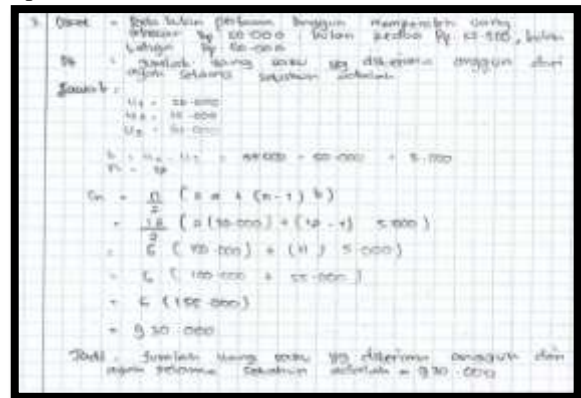 3. Diket = Pada bulan pertama Anggun memperoleh uang
sebesar Rp 50.000 bulan kedua Rp 55.000, bulan
Rp 60.000
Dit : Jumlah uang saku yg diterima anggun dari
ayah selama setahun adalah
Jawab :
U1 = 50.000
U2 = 55.000
U3 = 60.000
b = U2 - U1 = 55.000 - 50.000 = 5.000
n = 12
Sn = n/2 ( 2 a + (n-1) b )
= 12/2 ( 2 (50.000) + (12 - 1) 5.000 )
= 6 ( 100.000 ) + (11) 5.000 )
= 6 ( 100.000 + 55.000 )
= 6 (155.000)
= 930.000
Jadi, Jumlah uang saku yg diterima anggun dari
ayah selama setahun adalah = 930.000